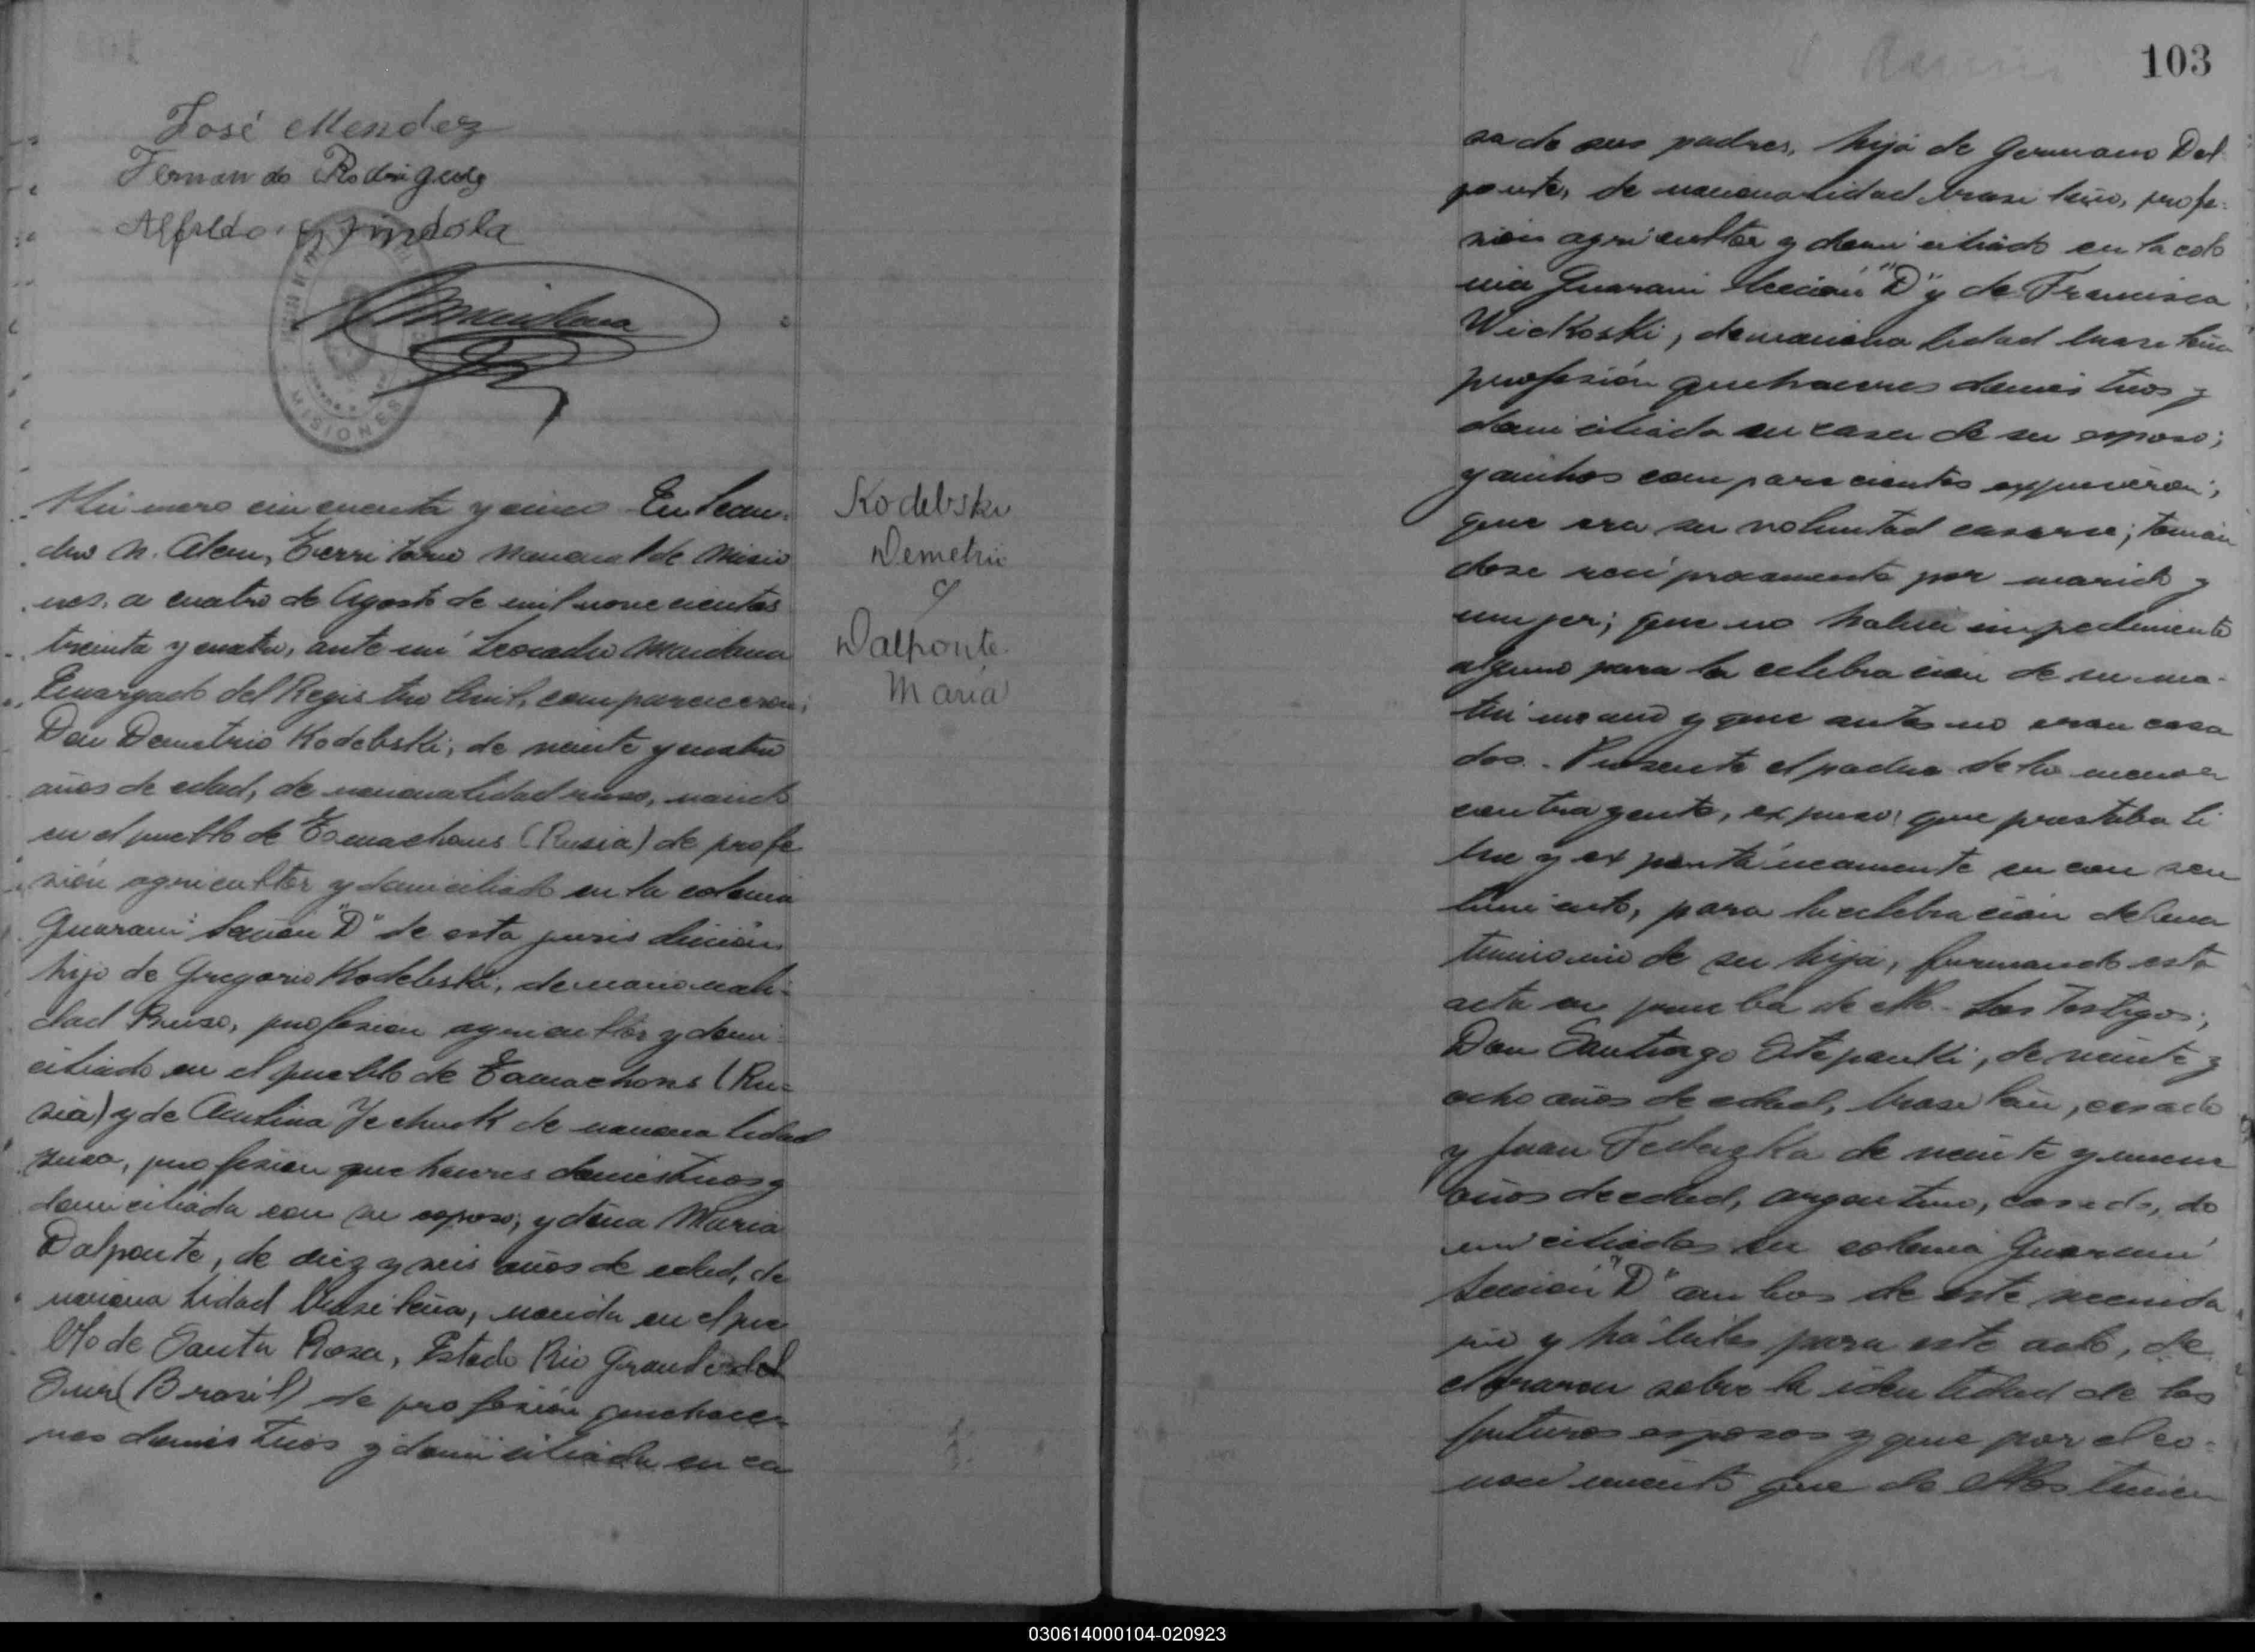 José Mendez
Fernando Rodriguez
Alfredo Grindola
MISIONES
Número cincuenta y cinco En Lean-
dro N. Alem, Territorio Nacional de Misio
nes, a cuatro de Agosto de mil novecientos
treinta y cuatro, ante mi Leocadio Maidana
Encargado del Registro Civil, comparecieron;
Don Demetrio Kodebski, de veinte y cuatro
años de edad, de nacionalidad ruso, nacido
en el pueblo de (Rusia) de profe
sión agricultor y domiciliado en la colonia
Guarani Sección "D" de esta jurisdicción
hijo de Gregorio Kodebski, de nacionali-
dad Ruso, profesion agricultor y domi-
ciliado en el pueblo de (Ru-
sia) y de de nacionalidad
rusa, profesion quehaceres domésticos y
domiciliada con su esposo; y doña Maria
Dalponte, de diez y seis años de edad, de
nacionalidad brasileña, nacida en el pue
blo de Santa Rosa, Estado Rio Grande del
Sur (Brasil) de profesión quehace-
res domésticos y domiciliada en ca
Kodebski
Demetrio
y
Dalponte
María
103
sa de sus padres, hija de Germano Dal
ponte, de nacionalidad brasileño, profe-
sión agricultor y domiciliado en la colo
nia Guarani Sección "D" y de Francisca
Wickoski, de nacionalidad brasileña
profesión quehaceres domésticos y
domiciliada en casa de su esposo;
y ambos comparecientes expusieron;
que era su voluntad casarse; tomán
dose recíprocamente por marido y
mujer; que no había impedimento
alguno para la celebración de su ma-
trimonio y que antes no eran casa
dos. Presente el padre de la menor
contrayente, expuso: que prestaba li
bre y expontáneamente su consen
timiento, para la celebración del ma
trimonio de su hija, firmando esta
acta en prueba de ello. Los Testigos;
Don Santiago de veinte y
ocho años de edad, brasileño, casado
y Juan de veinte y nueve
años de edad, argentino, casado, do
miciliados en colonia Guarani
Sección "D" ambos de este vecinda
rio y hábiles para este acto, de
clararon sobre la identidad de los
futuros esposos y que por el co-
nocimiento que de ellos tienen
030614000104-020923